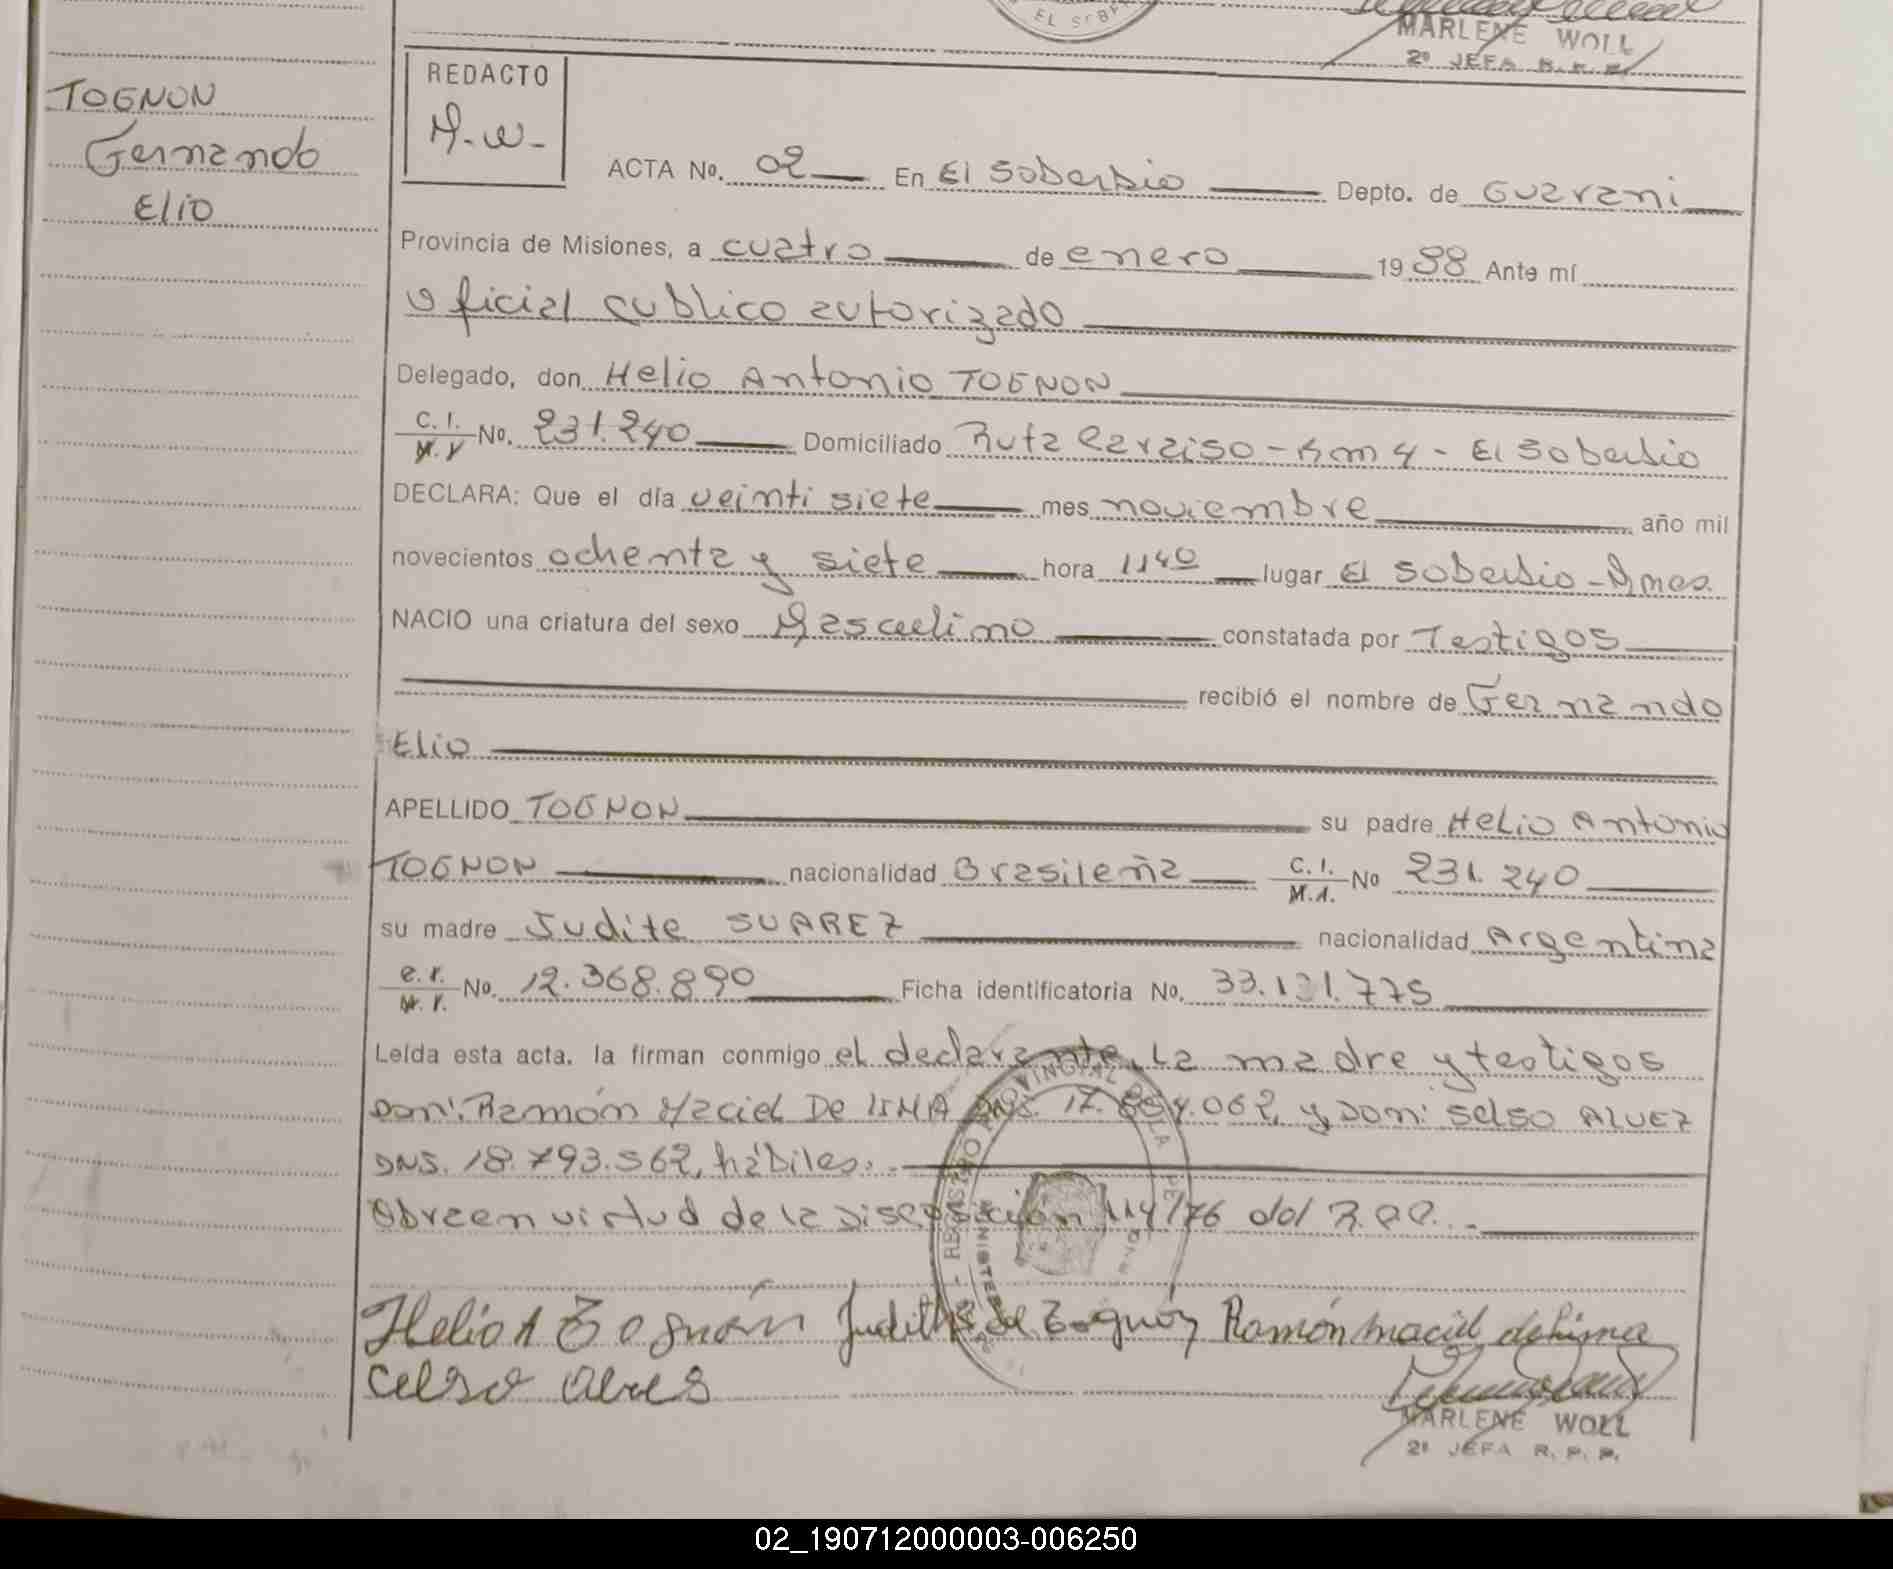 EL SOBE
MARLENE WOLL
2º JEFA R. P. P.
TOGNON
Fernando
Elio
REDACTO
M.w-
ACTA No. 02 En El Soberbio Depto. de Guarani
Provincia de Misiones, a cuatro de enero 1988 Ante mí
oficial publico autorizado
Delegado, don Helio Antonio TOGNON
C. I. No. 231.240 Domiciliado Ruta Paraiso - Km 4 - El Soberbio
DECLARA: Que el día veinti siete mes noviembre año mil
novecientos ochenta y siete hora 1140 lugar El Soberbio - Mnes.
NACIO una criatura del sexo Masculino constatada por Testigos
recibió el nombre de Fernando
Elio
APELLIDO TOGNON su padre Helio Antonio
TOGNON nacionalidad Brasileña C. I. M.I. No 231.240
su madre Judite SUAREZ nacionalidad Argentina
No. 12.368.890 Ficha identificatoria No. 33.131.775
Leída esta acta, la firman conmigo el declarante, la madre y testigos
Don: Ramón Maciel De LIMA DNI. 17. 062, y Don: Selso ALVEZ
DNI. 18.793.562, hábiles.
Obra en virtud de la Disposición 114/76 del R.P.P.
REGISTRO PROVINCIAL DE LA
MINISTER
Helio A Tognon Judith S de Tognon Ramón maciel de lima
Celso alves
MARLENE WOLL
2º JEFA R. P. P.
02_190712000003-006250